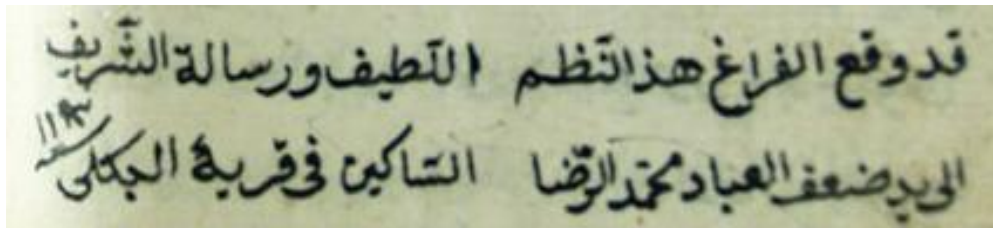 قد وقع الفراغ هذا النظم اللطيف ورسالة الشريف
الى يد ضعف العباد محمد الرضا الساكين فى قرية الجكلى
سنه ١١٩٣